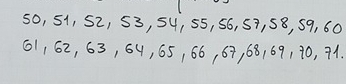 50, 51, 52, 53, 54, 55, 56, 57, 58, 59, 60
61, 62, 63, 64, 65, 66, 67, 68, 69, 70, 71.